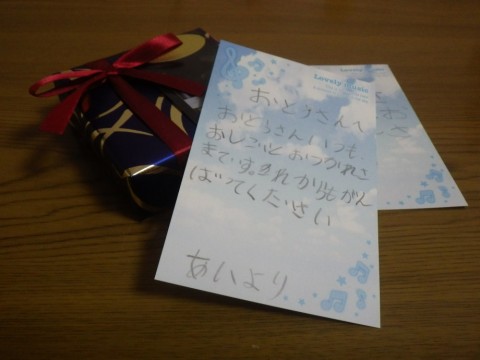 Lovely Music
おとうさんへ
おとうさんいつも
おしごとおつかれさ
まです。これからもがん
ばってください
あいより
Lovely Music